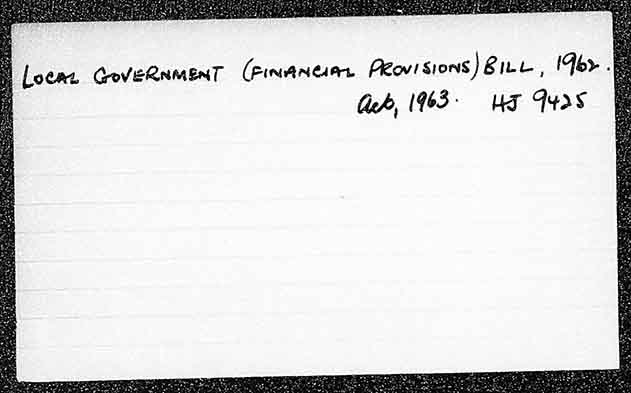 LOCAL GOVERNMENT (FINANCIAL PROVISIONS) BILL, 1962.
Act, 1963. HJ 9425